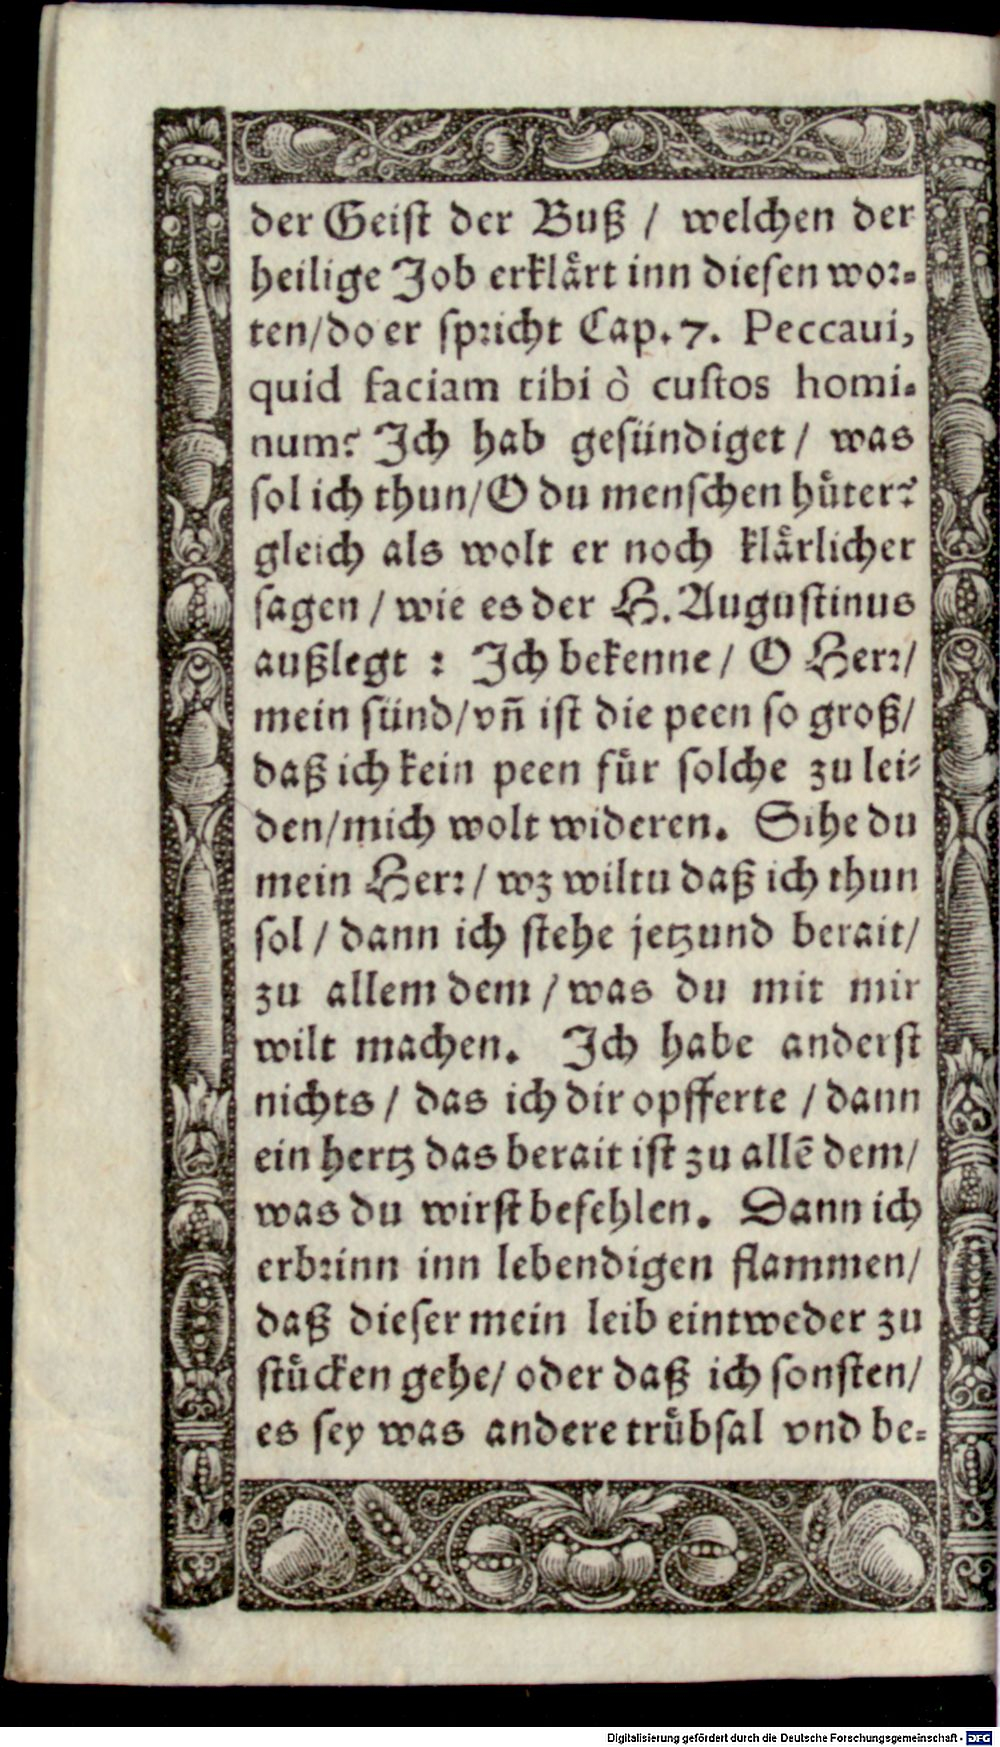 der Geist der Buß / welchen der
heilige Job erklaͤrt inn diesen wor-
ten/do er spricht Cap. 7. Peccaui,
quid faciam tibi ò custos homi-
num? Ich hab gesündiget / was
sol ich thun/O du menschen huͤter?
gleich als wolt er noch klaͤrlicher
sagen / wie es der H. Augustinus
außlegt : Ich bekenne / O Herr/
mein sünd/vn̄ ist die peen so groß/
daß ich kein peen fuͤr solche zu lei-
den/mich wolt wideren. Sihe du
mein Herr / wz wiltu daß ich thun
sol / dann ich stehe jetzund berait/
zu allem dem / was du mit mir
wilt machen. Ich habe anderst
nichts / das ich dir opfferte / dann
ein hertz das berait ist zu allē dem/
was du wirst befehlen. Dann ich
erbrinn inn lebendigen flammen/
daß dieser mein leib eintweder zu
stuͤcken gehe/ oder daß ich sonsten/
es sey was andere truͤbsal vnd be-
Digitalisierung gefördert durch die Deutsche Forschungsgemeinschaft - DFG